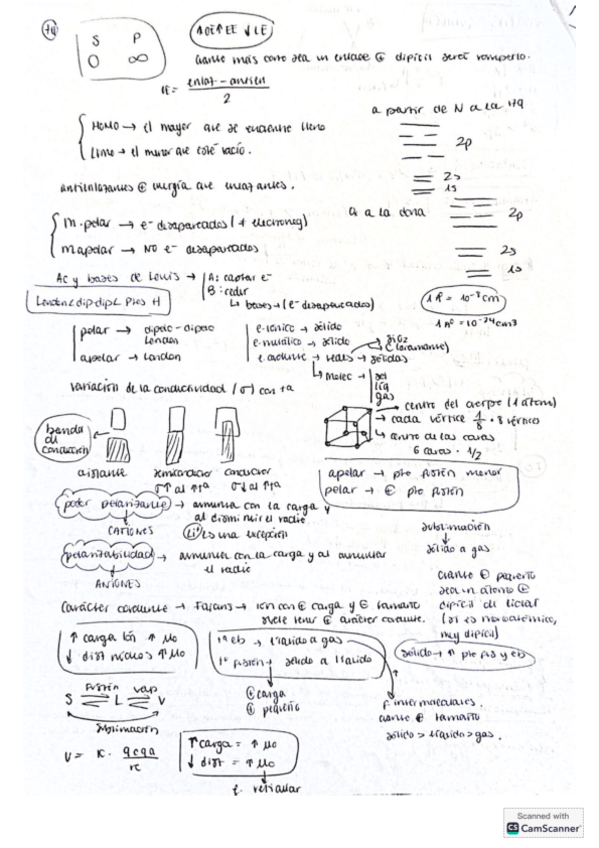 S P
0 ∞
↑OE↑EE ↓LE
cuanto más corto sea un enlace ⊕ difícil será romperlo.
IE = enlaz - anlien / 2
a partir de N a la Hq
HOMO → el mayor que se encuentre lleno
LUMO → el menor que esté vacío.
2p
2s
1s
antienlazantes ⊕ energía que enlazantes.
2p
2s
1s
M. polar → e- desapareados (+ electroneg)
M apolar → NO e- desapareados
Ac y bases de Lewis → A: captar e-
B: ceder
↳ bases → (e- desapareados)
London < dip-dip < Ptes H
1 Å = 10⁻⁸ cm
1 Å³ = 10⁻²⁴ cm³
polar → dipolo - dipolo
London
apolar → London
e. iónico → sólido
e. metálico → sólido
e. covalente → redes → sólidas
SiO2
C (diamante)
↳ Molec → sol
líq
gas
variación de la conductividad (σ) con tª
banda de conducción
aislante semiconductor conductor
σ↑ al ↑tª σ↓ al ↑tª
centro del cuerpo (1 átomo)
cada vértice 1/8 · 8 vértices
centro de las caras
6 caras · 1/2
apolar → pto fusión menor
polar → ⊕ pto fusión
poder polarizante → aumenta con la carga y
al disminuir el radio
CATIONES
Li es una excepción
sublimación
sólido a gas
polarizabilidad → aumenta con la carga y al aumentar
el radio
ANIONES
cuanto ⊕ pequeño
sea un átomo ⊕
difícil de licuar
(si es monoatómico,
muy difícil)
Carácter covalente → Fajans → ion con ⊕ carga y ⊖ tamaño
suele tener ⊕ carácter covalente.
↑ carga ion ↑ Uo
↓ dist núcleos ↑ Uo
Tª eb → líquido a gas
Tª fusión → sólido a líquido
sólido → ↑ pto fus y eb
⊕ carga
⊕ pequeño
F intermoleculares.
cuanto ⊕ tamaño
sólido > líquido > gas.
fusión vap
S ⇌ L ⇌ V
sublimación
↑ carga = ↑ Uo
↓ dist = ↑ Uo
E. reticular
Scanned with
CS CamScanner